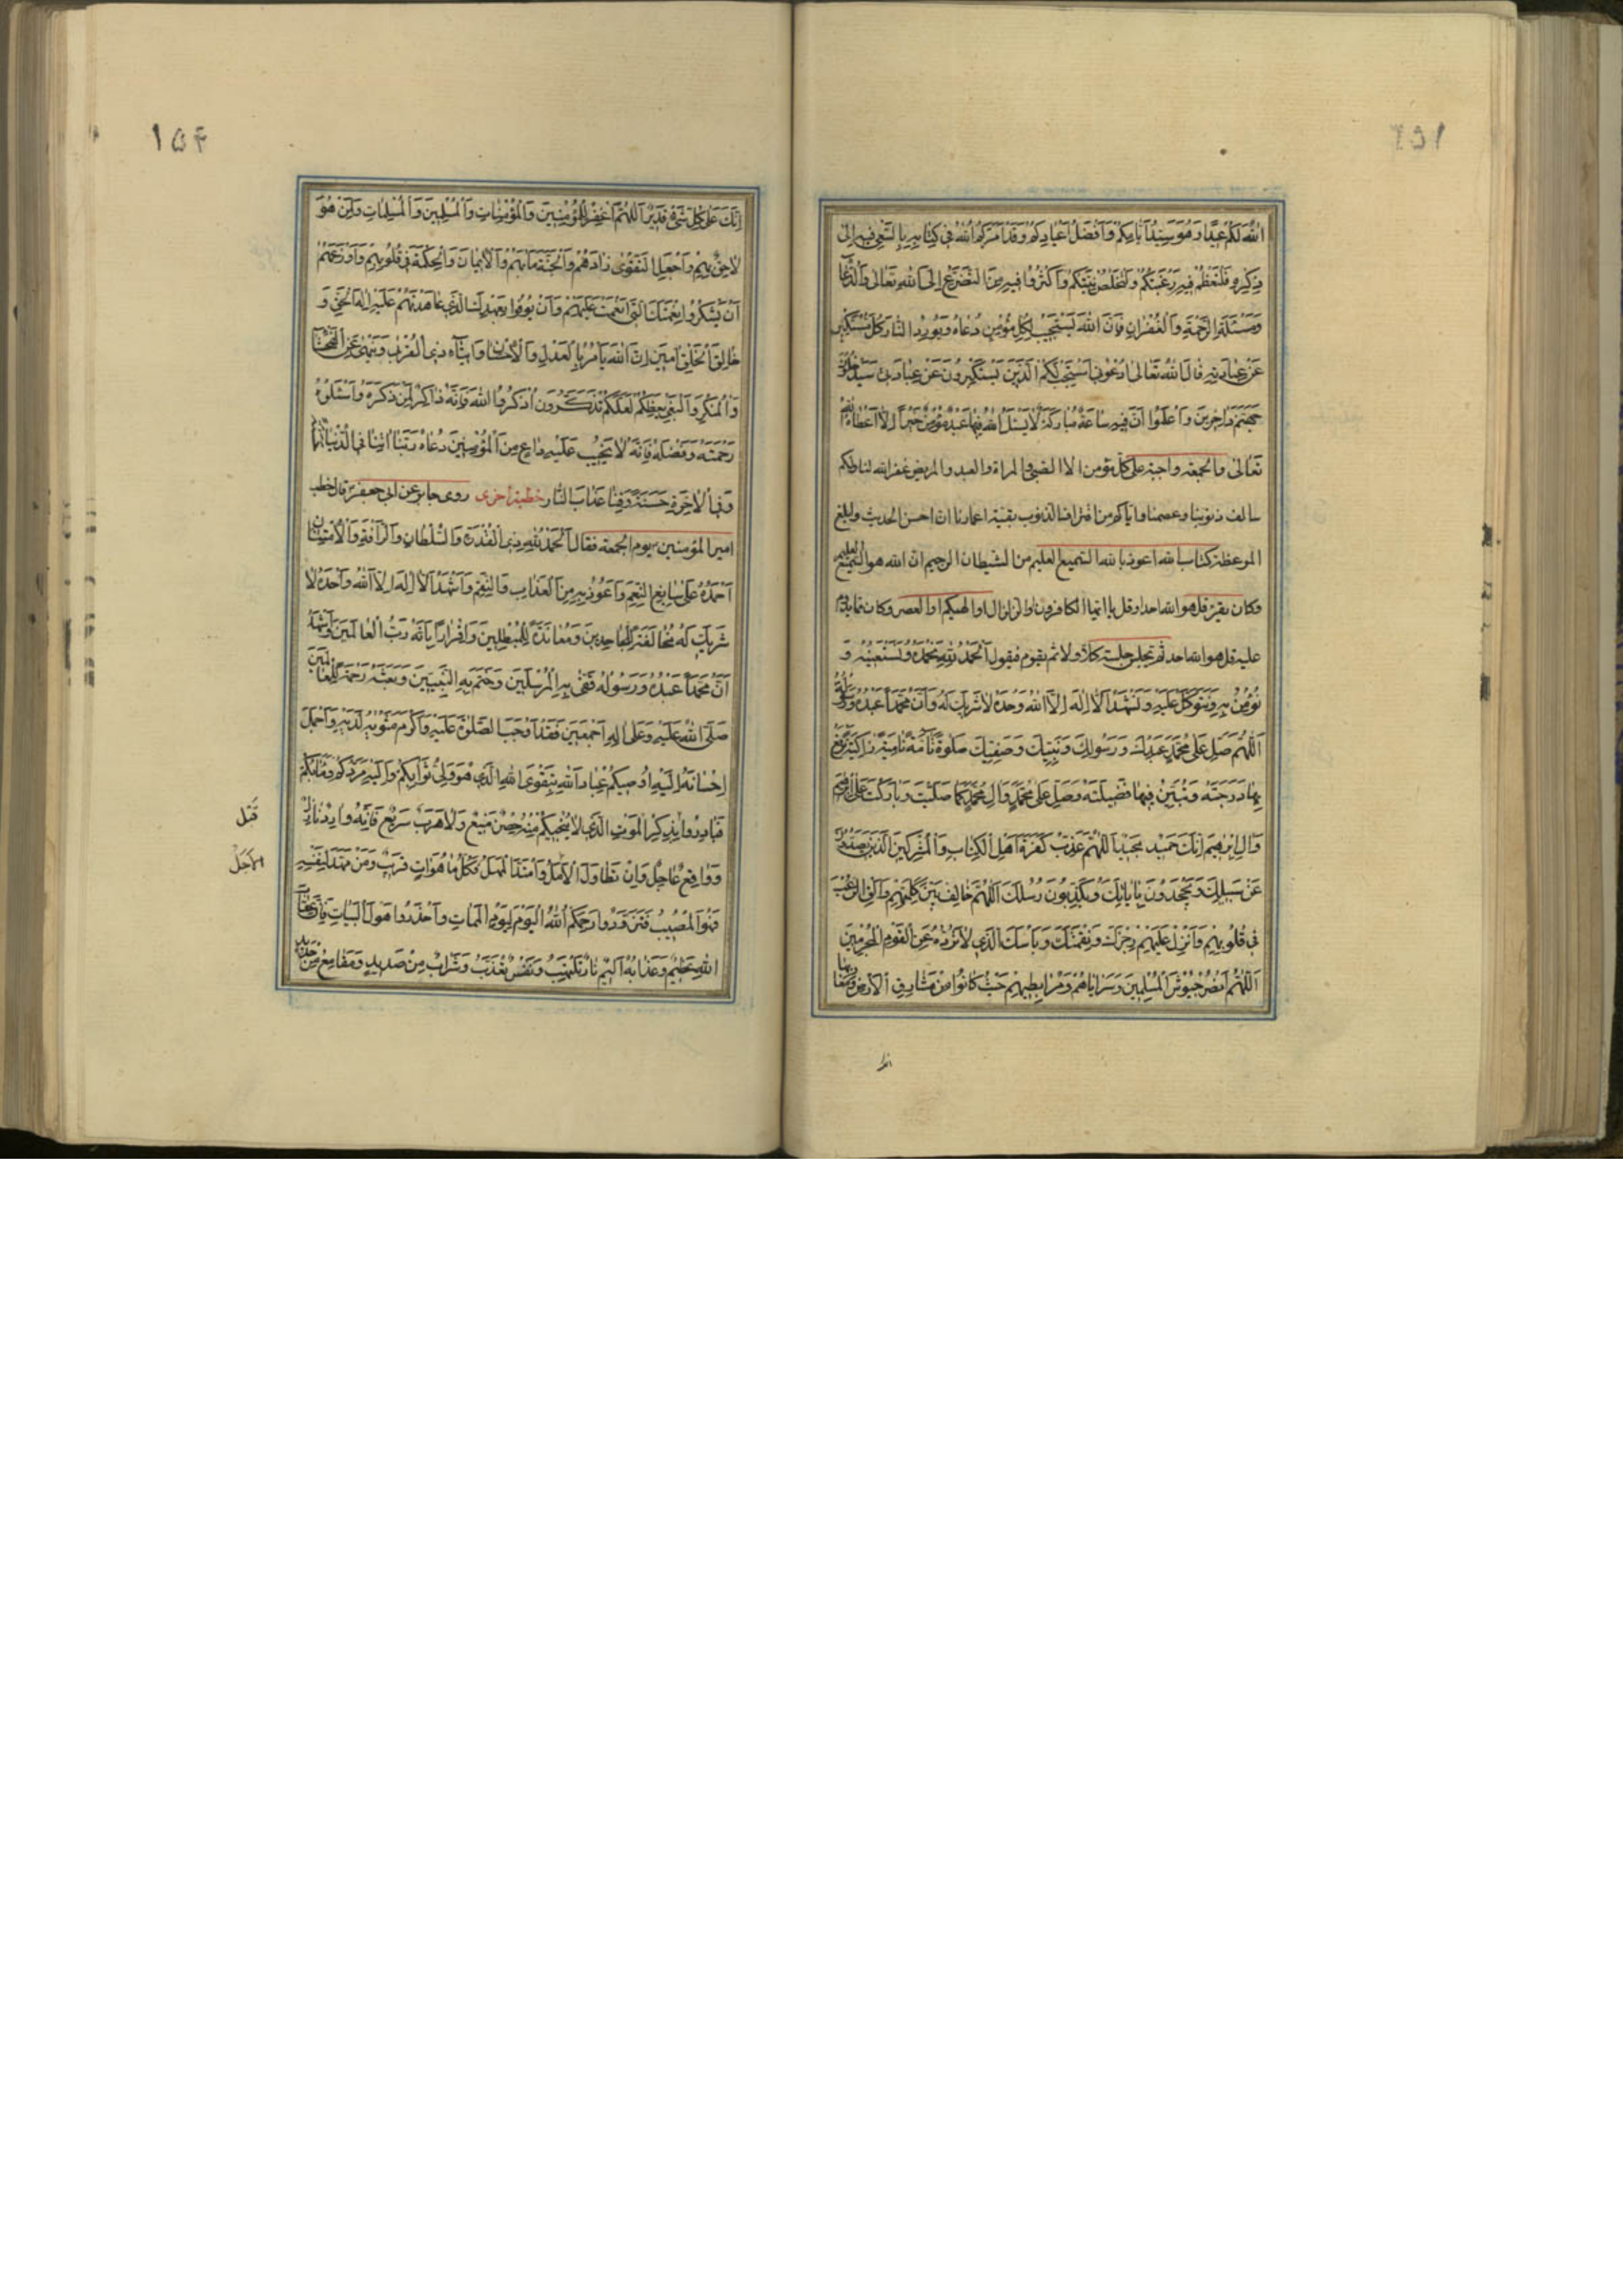 ١٥٣
اللهُ لَكُمْ عِيدًا وَهُوَ سَيِّدُ أَيَّامِكُمْ وَأَفْضَلُ أَعْيَادِكُمْ وَقَدْ أَمَرَكُمُ اللهُ فِي كِتَابِهِ بِالسَّعْيِ فِيهِ إِلَى
ذِكْرِهِ فَلْتَعْظُمْ فِيهِ رَغْبَتُكُمْ وَلْتَخْلُصْ نِيَّتُكُمْ وَأَكْثِرُوا فِيهِ مِنَ التَّضَرُّعِ إِلَى اللهِ تَعَالَى وَالدُّعَاءِ
وَمَسْئَلَةِ الرَّحْمَةِ وَالْغُفْرَانِ فَإِنَّ اللهَ يَسْتَجِيبُ لِكُلِّ مُؤْمِنٍ دُعَاءَهُ وَيُورِدُ النَّارَ كُلَّ مُسْتَكْبِرٍ
عَنْ عِبَادَتِهِ قَالَ اللهُ تَعَالَى ادْعُونِي أَسْتَجِبْ لَكُمْ إِنَّ الَّذِينَ يَسْتَكْبِرُونَ عَنْ عِبَادَتِي سَيَدْخُلُونَ
جَهَنَّمَ دَاخِرِينَ وَاعْلَمُوا أَنَّ فِيهِ سَاعَةً مُبَارَكَةً لَا يَسْئَلُ اللهَ فِيهَا عَبْدٌ مُؤْمِنٌ خَيْرًا إِلَّا أَعْطَاهُ اللهُ
تَعَالَى والجمعة واجبة على كل مؤمن الا الصبي والمراة والعبد والمريض غفر الله لنا ولكم
سالف ذنوبنا وعصمنا واياكم من اقتراف الذنوب بقية اعمارنا ان احسن الحديث وابلغ
الموعظة كتاب الله اعوذ بالله السميع العليم من الشيطان الرجيم ان الله هو السميع العليم
وكان يقرء قل هو الله احد او قل يا ايها الكافرون او الزلزال او الهيكم او العصر وكان مما يدوم
عليه قل هو الله احد ثم يجلس جلسة كلا ولا ثم يقوم فيقول اَلْحَمْدُ لِلّهِ نَحْمَدُهُ وَنَسْتَعِينُهُ وَ
نُؤْمِنُ بِهِ وَنَتَوَكَّلُ عَلَيْهِ وَنَشْهَدُ أَنْ لَا إِلَهَ إِلَّا اللهُ وَحْدَهُ لَا شَرِيكَ لَهُ وَأَنَّ مُحَمَّدًا عَبْدُهُ وَرَسُولُهُ
اَللَّهُمَّ صَلِّ عَلَى مُحَمَّدٍ عَبْدِكَ وَرَسُولِكَ وَنَبِيِّكَ وَصَفِيِّكَ صَلَوةً تَامَّةً نَامِيَةً زَاكِيَةً تَرْفَعُ
بِهَا دَرَجَتَهُ وَتُبَيِّنُ فِيهَا فَضِيلَتَهُ وَصَلِّ عَلَى مُحَمَّدٍ وَآلِ مُحَمَّدٍ كَمَا صَلَّيْتَ وَبَارَكْتَ عَلَى إِبْرَهِيمَ
وَآلِ إِبْرَهِيمَ إِنَّكَ حَمِيدٌ مَجِيدٌ اَللَّهُمَّ عَذِّبْ كَفَرَةَ أَهْلِ الْكِتَابِ وَالْمُشْرِكِينَ الَّذِينَ يَصُدُّونَ
عَنْ سَبِيلِكَ وَيَجْحَدُونَ بِآيَاتِكَ وَيُكَذِّبُونَ رُسُلَكَ اَللَّهُمَّ خَالِفْ بَيْنَ كَلِمَتِهِمْ وَأَلْقِ الرُّعْبَ
فِي قُلُوبِهِمْ وَأَنْزِلْ عَلَيْهِمْ رِجْزَكَ وَنَقِمَتَكَ وَبَأْسَكَ الَّذِي لَا تَرُدُّهُ عَنِ الْقَوْمِ الْمُجْرِمِينَ
اَللَّهُمَّ انْصُرْ جُيُوشَ الْمُسْلِمِينَ وَسَرَايَاهُمْ وَمُرَابِطِيهِمْ حَيْثُ كَانُوا مِنْ مَشَارِقِ الْأَرْضِ وَمَغَارِبِهَا
انك
١٥٤
إِنَّكَ عَلَى كُلِّ شَيْءٍ قَدِيرٌ اَللَّهُمَّ اغْفِرْ لِلْمُؤْمِنِينَ وَالْمُؤْمِنَاتِ وَالْمُسْلِمِينَ وَالْمُسْلِمَاتِ وَلِمَنْ هُوَ
لَاحِقٌ بِهِمْ وَاجْعَلِ التَّقْوَى زَادَهُمْ وَالْجَنَّةَ مَآبَهُمْ وَالْإِيمَانَ وَالْحِكْمَةَ فِي قُلُوبِهِمْ وَأَوْزِعْهُمْ
أَنْ يَشْكُرُوا نِعْمَتَكَ الَّتِي أَنْعَمْتَ عَلَيْهِمْ وَأَنْ يُوفُوا بِعَهْدِكَ الَّذِي عَاهَدْتَهُمْ عَلَيْهِ إِلَهَ الْحَقِّ وَ
خَالِقَ الْخَلْقِ آمِينَ إِنَّ اللهَ يَأْمُرُ بِالْعَدْلِ وَالْإِحْسَانِ وَإِيتَاءِ ذِي الْقُرْبَى وَيَنْهَى عَنِ الْفَحْشَاءِ
وَالْمُنْكَرِ وَالْبَغْيِ يَعِظُكُمْ لَعَلَّكُمْ تَذَكَّرُونَ اُذْكُرُوا اللهَ فَإِنَّهُ ذَاكِرٌ لِمَنْ ذَكَرَهُ وَاسْئَلُوهُ
رَحْمَتَهُ وَفَضْلَهُ فَإِنَّهُ لَا يَخِيبُ عَلَيْهِ دَاعٍ مِنَ الْمُؤْمِنِينَ دَعَاهُ رَبَّنَا آتِنَا فِي الدُّنْيَا حَسَنَةً
وَفِي الْآخِرَةِ حَسَنَةً وَقِنَا عَذَابَ النَّارِ خطبة اخرى روى جابر عن ابي جعفر ع قال خطب
امير المؤمنين ع يوم الجمعة فقال اَلْحَمْدُ لِلّهِ ذِي الْقُدْرَةِ وَالسُّلْطَانِ وَالرَّأْفَةِ وَالْاِمْتِنَانِ
أَحْمَدُهُ عَلَى تَتَابُعِ النِّعَمِ وَأَعُوذُ بِهِ مِنَ الْعَذَابِ وَالنِّقَمِ وَأَشْهَدُ أَنْ لَا إِلَهَ إِلَّا اللهُ وَحْدَهُ لَا
شَرِيكَ لَهُ مُخَالَفَةً لِلْجَاحِدِينَ وَمُعَانَدَةً لِلْمُبْطِلِينَ وَإِقْرَارًا بِأَنَّهُ رَبُّ الْعَالَمِينَ وَأَشْهَدُ
أَنَّ مُحَمَّدًا عَبْدُهُ وَرَسُولُهُ قَفَّى بِهِ الْمُرْسَلِينَ وَخَتَمَ بِهِ النَّبِيِّينَ وَبَعَثَهُ رَحْمَةً لِلْعَالَمِينَ
صَلَّى اللهُ عَلَيْهِ وَعَلَى آلِهِ أَجْمَعِينَ فَقَدْ أَوْجَبَ الصَّلَوةَ عَلَيْهِ وَأَكْرَمَ مَثْوَيهُ لَدَيْهِ وَأَجْمَلَ
إِحْسَانَهُ إِلَيْهِ أُوصِيكُمْ عِبَادَ اللهِ بِتَقْوَى اللهِ الَّذِي هُوَ وَلِيُّ ثَوَابِكُمْ وَإِلَيْهِ مَرَدُّكُمْ وَمَآبُكُمْ
فَبَادِرُوا بِذِكْرِ الْمَوْتِ الَّذِي لَا يُنْجِيكُمْ مِنْهُ حِصْنٌ مَنِيعٌ وَلَا هَرَبٌ سَرِيعٌ فَإِنَّهُ وَارِدٌ نَازِلٌ
قَبْلَ
وَوَاقِعٌ عَاجِلٌ وَإِنْ تَطَاوَلَ الْأَمَلُ وَامْتَدَّ الْمَهَلُ فَكُلُّ مَا هُوَ آتٍ قَرِيبٌ وَمَنْ مَهَّدَ لِنَفْسِهِ
الْأَجَلُ
فَهُوَ الْمُصِيبُ فَتَزَوَّدُوا رَحِمَكُمُ اللهُ الْيَوْمَ لِيَوْمِ الْمَمَاتِ وَاحْذَرُوا هَوْلَ الْبَيَاتِ فَإِنَّ عِقَابَ
اللهِ عَظِيمٌ وَعَذَابَهُ أَلِيمٌ نَارٌ تَلْتَهِبُ وَنَفْسٌ تُعَذَّبُ وَشَرَابٌ مِنْ صَدِيدٍ وَمَقَامِعُ مِنْ حَدِيدٍ